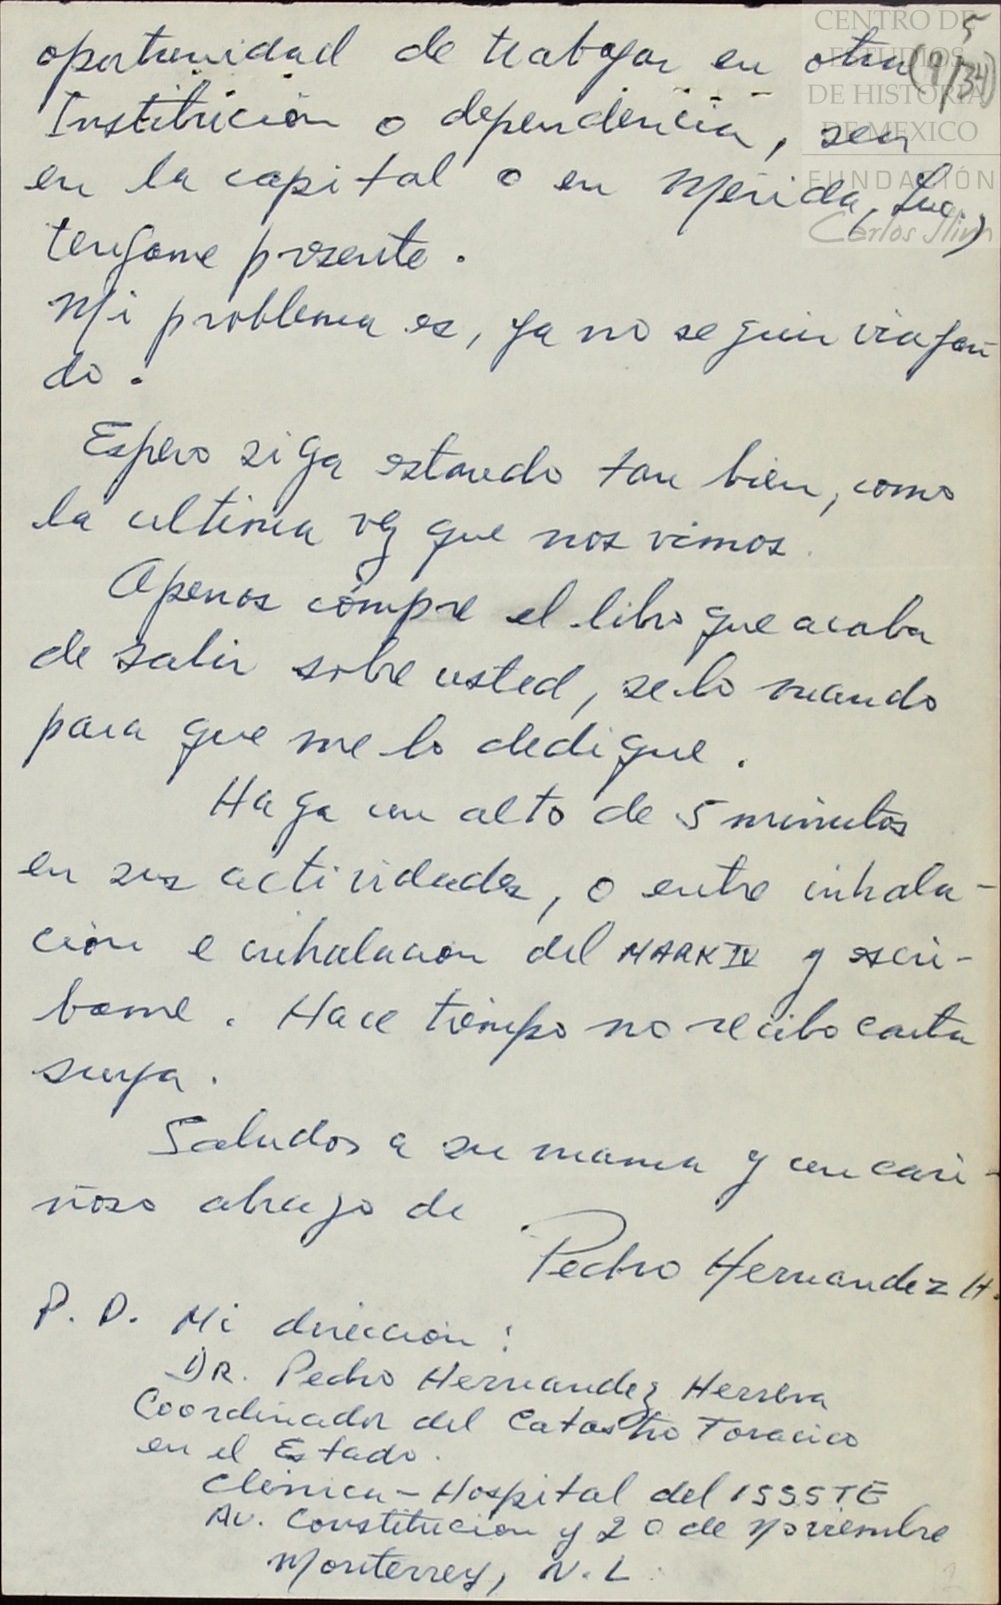 CENTRO DE
ESTUDIOS
DE HISTORIA
DE MEXICO
FUNDACIÓN
Carlos Slim
5
(9/34)
oportunidad de trabajar en otra
Institución o dependencia, sea
en la capital o en Merida, Yuc.)
tengame presente.
Mi problema es, ya no seguir viajan
do.
Espero siga estando tan bien, como
la ultima vez que nos vimos.
Apenas compre el libro que acaba
de salir sobre usted, se lo mando
para que me lo dedique.
Haga un alto de 5 minutos
en sus actividades, o entre inhala-
ción e inhalacion del MARK IV y escri-
bame. Hace tiempo no recibo carta
suya.
Saludos a su mama y un cari-
ñoso abrazo de
Pedro Hernandez H.
P. D. Mi direccion:
DR. Pedro Hernandez Herrera
Coordinador del Catastro Toracico
en el Estado.
Clinica-Hospital del ISSSTE
Av. Constitucion y 20 de Noviembre
Monterrey, N.L.